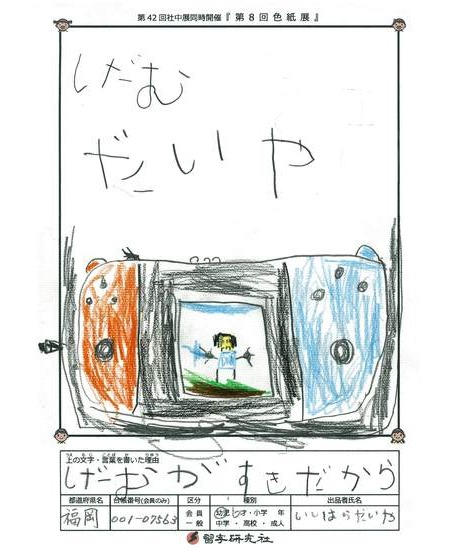 第42回社中展同時開催『第8回色紙展』
げーむ
だいや
上の文字・言葉を書いた理由
げーむがすきだから
都道府県名 台帳番号(会員のみ) 区分 種別 出品者氏名
福岡 001-07563 会員 小学 年 いしはらだいや
一般 中学・高校・成人
習字研究社